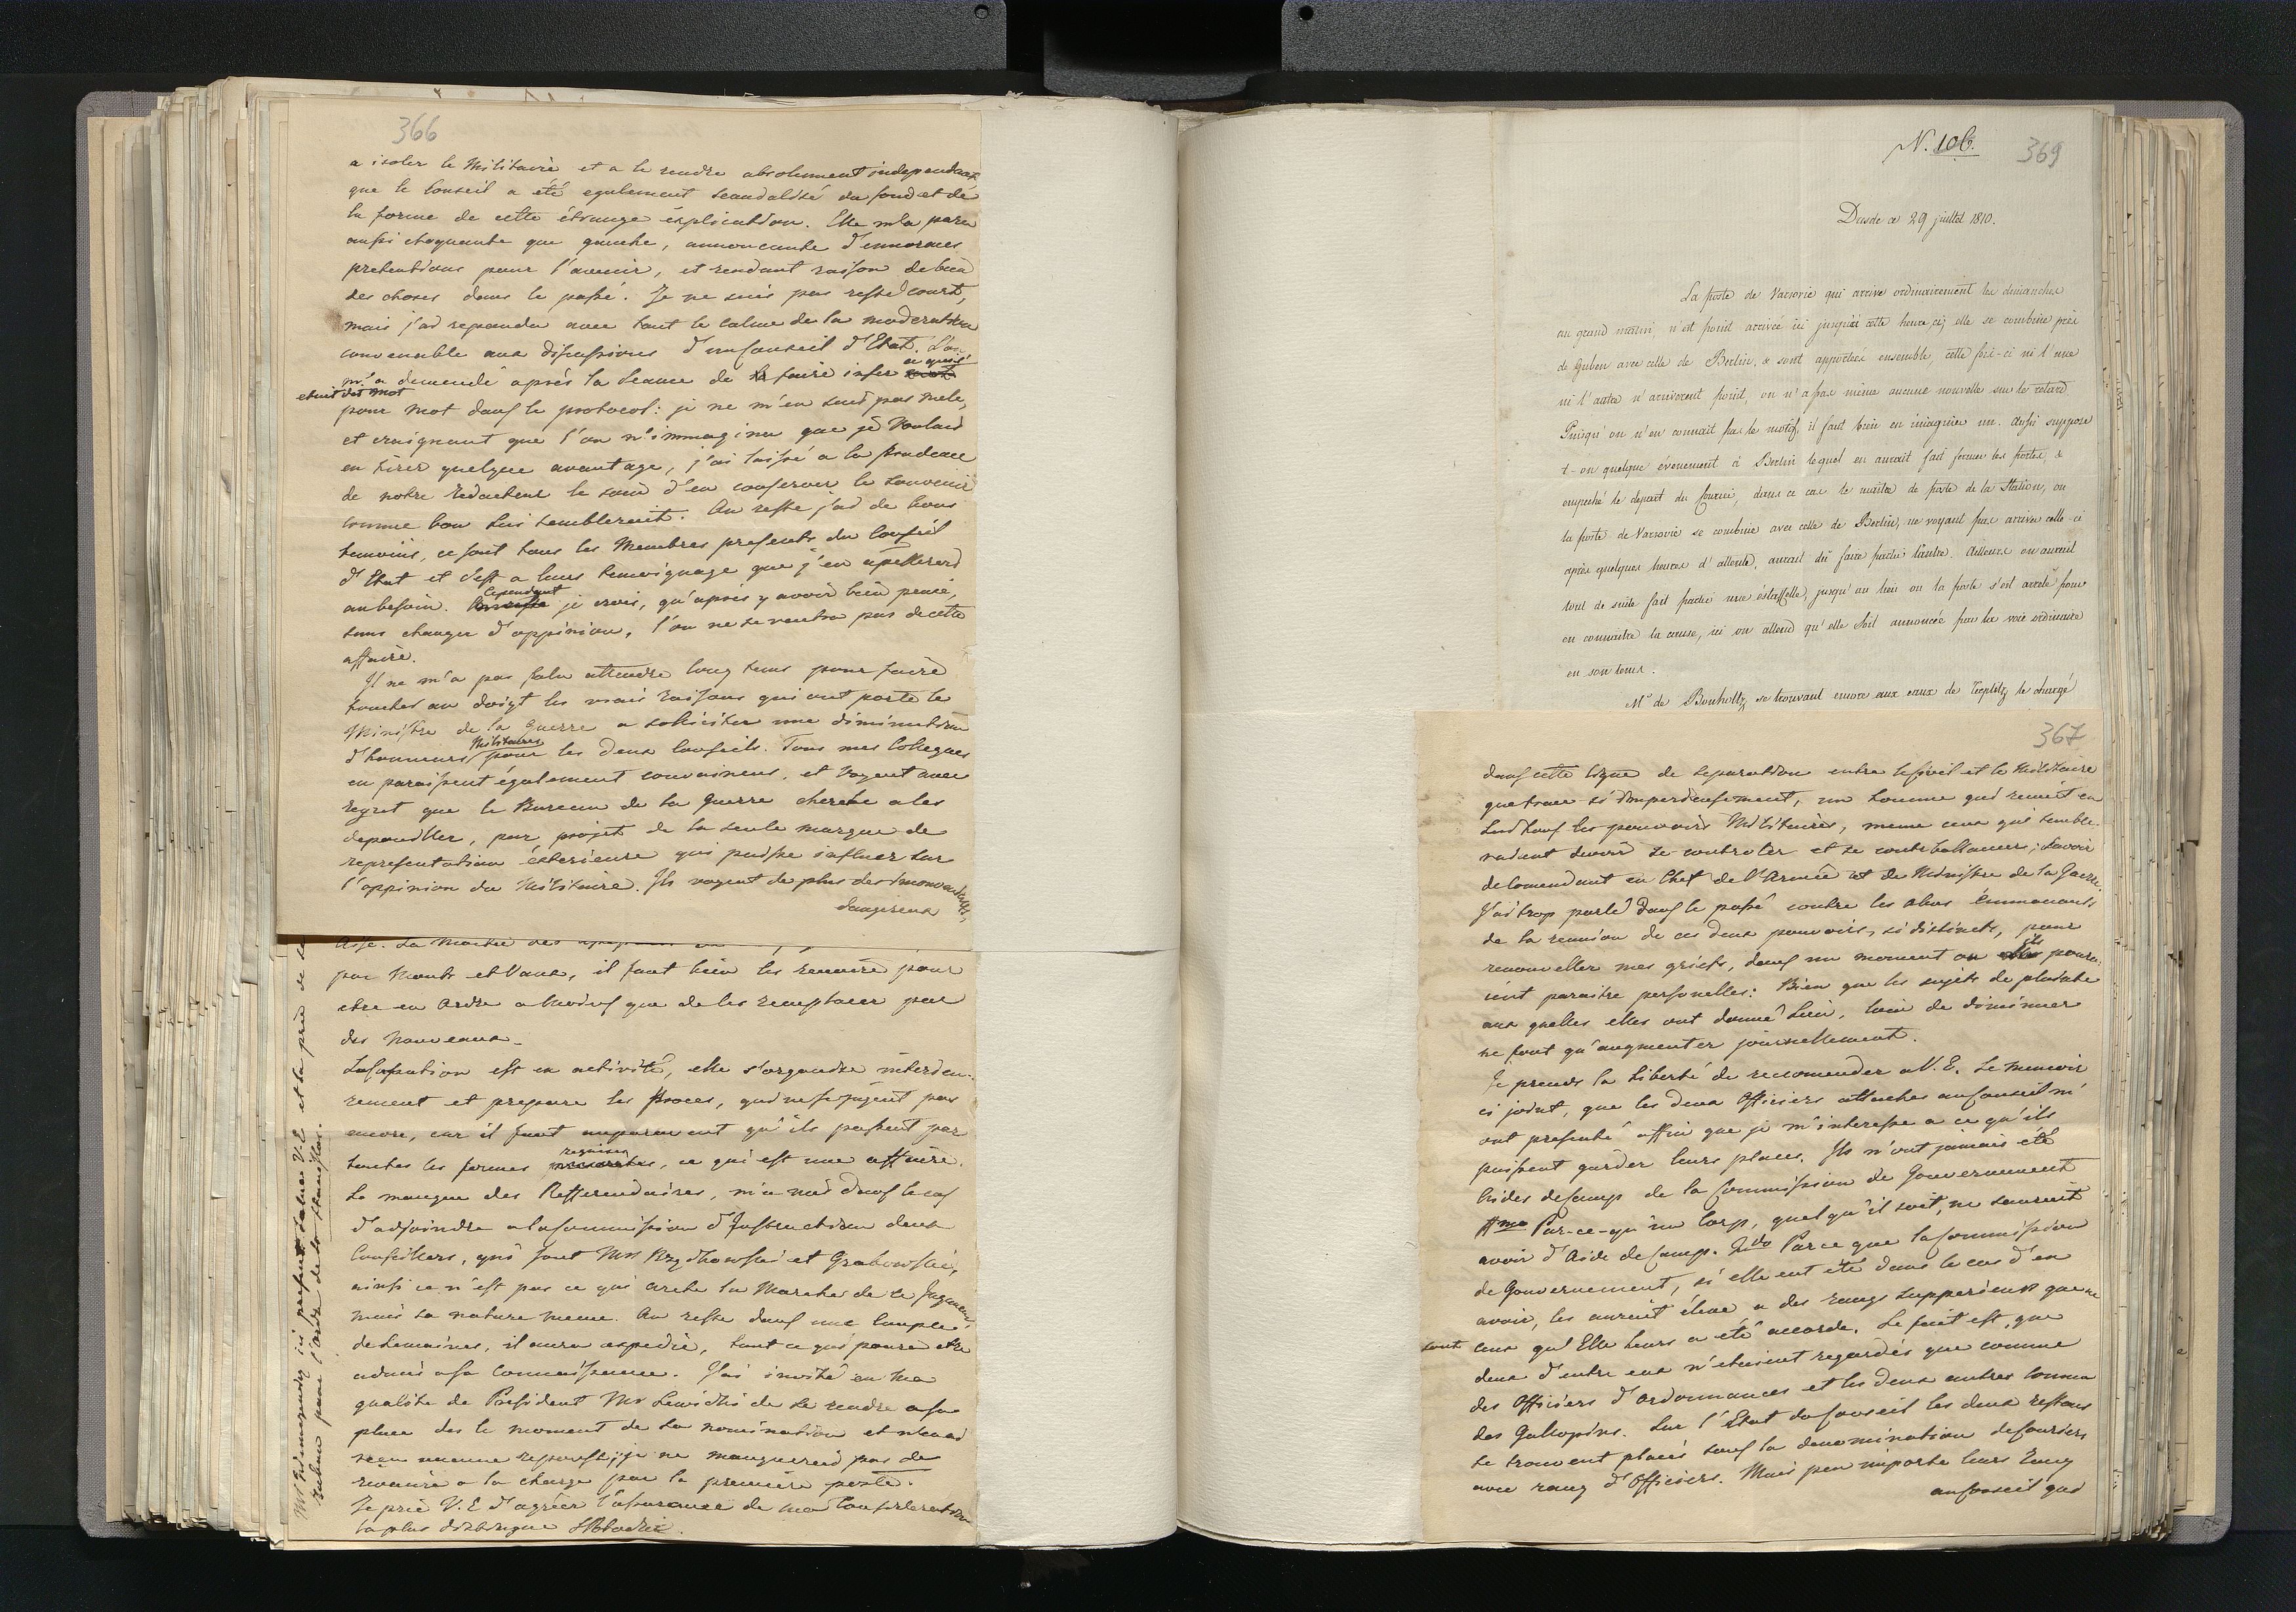 366
a isoler le Militaire et a le rendre absolument independant
que le Conseil a été egalement scandalisé du fond et de
la forme de cette étrange explication. Elle m'a paru
aussi choquante que gauche, annoncante d'ennormes
pretentions pour l'avenir, et rendant raison de bien
des choses dans le passé. Je ne suis pas resté court,
mais j'ai repondu avec tout le calme de la moderation
convenable aux discussions d'un Conseil d'Etat. L'on
m'a demendé après la Seance de faire inser ce qui s'
etait dit mot
pour mot dans le protocol: je ne m'en suis pas melé,
et craignant que l'on n'immagina que je voulais
en tirer quelque avantage, j'ai laissé a la prudence
de notre redacteur le soin d'en conserver le souvenir
comme bon lui sembleroit. Au reste j'ai de bons
temoins, ce sont tous les Membres presents du Conseil
d'Etat et c'est a leurs temoignage que j'en apellerai
au besoin. Cependant je crois, qu'après y avoir bien pensé,
sans changer d'oppinion, l'on ne se ventra pas de cette
affaire.
Il ne m'a pas falu attendre long tems pour faire
toucher au doigt les vrais raisons qui ont porté le
Ministre de la Guerre a soliciter une diminution
d'honneurs Militaires pour les deux Conseils. Tous mes Collegues
en paraissent également convaincus, et voyent avec
regret que le Bureau de la Guerre cherche a les
depouiller, par projet de la seule marque de
representation éxterieure qui puisse influer sur
l'oppinion du Militaire. Ils voyent de plus des
dangereux
par Monts et Vaux, il faut bien les remoire pour
etre en ordre a moins que de les remplacer par
des nouveaux.
La Cassation est en activité, elle s'organise interieu-
rement et prepare les Proces, qui ne se jugent pas
encore, car il faut auparavant qu'ils passent par
toutes les formes requises, ce qui est une affaire.
Le manque des Refferendaires, m'a mis dans le cas
d'adjoindre a la Commission d'Instruction deux
Conseillers, qui sont Mrs Brychowski et Grabowski,
ainsi ce n'est pas ce qui arete la Marche de ce Jugement
mais sa nature meme. Au reste dans une couple
de Semaines, il aura expedié, tout ce qui poura etre
admis a sa Connaissance. J'ai invité en ma
qualité de President Mr Lewicki de se rendre a sa
place des le moment de sa nomination et n'ayant
reçu aucune reponse, je ne manquerai pas de
revenir a la charge par la premiere poste.
Je prie V.E d'agréer l'assurance de ma Consideration
la plus distinguée SPotocki.
N. 106.
369
Dresde ce 29 juillet 1810.
La poste de Varsovie qui arrive ordinairement les dimanches
au grand matin n'est point arrivée ici jusqu'à cette heure ci; elle se combine près
de Guben avec celle de Berlin, & sont apportées ensemble, cette fois-ci ni l'une
ni l'autre n'arriverent point, on n'a pas même aucune nouvelle sur le retard
Puisqu'on n'en connait pas le motif, il faut bien en imaginer un. Aussi suppose
t-on quelque évenement à Berlin lequel en aurait fait fermer les portes, &
empeché le depart du Courier, dans ce cas le maître de poste de la Station, ou
la poste de Varsovie se combine avec celle de Berlin, ne voyant pas arriver celle-ci
après quelques heures d'attente, aurait dû faire partir l'autre. Ailleurs on aurait
tout de suite fait partir une éstaffette, jusqu'au lieu ou la poste s'est arretée pour
en connaitre la cause, ici on attend qu'elle soit annoncée par la voie ordinaire
en son tems.
Mr de Bouholtz se trouvant encore aux eaux de Teplitz le chargé
367
dans cette ligne de separation entre le Civil et le Militaire
que trace si imperieusement, un homme qui reunit en
lui tous les pouvoirs Militaires, meme ceux qui semble-
raient devoir se controler et se contreballancer; savoir
de Comendant en Chef de l'Armée et de Ministre de la Guerre.
J'ai trop parlé dans le passé contre les abus émmanants
de la reunion de ces deux pouvoirs, si distincts, pour
renouveller mes griefs, dans un moment ou ils poura-
ient paraitre personelles: Bien que les sujets de plainte
aux quelles elles ont donné lieu, loin de diminuer
ne font qu'augmenter journellement.
Je prends la liberté de recomender a V.E. le memoir
ci joint, que les deux Officiers attachés au Conseil m'
ont presenté affin que je m'interesse a ce qu'ils
puissent garder leurs places. Ils n'ont jamais été
Aides de Camp de la Commission de Gouvernement
Imo Par-ce-qu'un Corp, quel qu'il soit, ne sauroit
avoir d'Aide de Camp. 2do Parce que la Commission
de Gouvernement, si elle eut été dans le cas d'en
avoir, les auroit élevé a des rangs supperieurs que ne
sont ceux qu'Elle leurs a été accordé. Le fait est, que
deux d'entre eux n'etaient regardés que comme
des Officiers d'ordonnances et les deux autres comme
des Gallopins. Sur l'Etat du Conseil les deux restans
se trouvent placés sous la denomination de Couriers
avec rang d'Officiers. Mais peu importe leurs rang
au Conseil qui